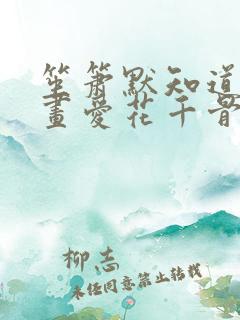 笙箫默知道
画爱花千骨
柳志
未经同意禁止转载